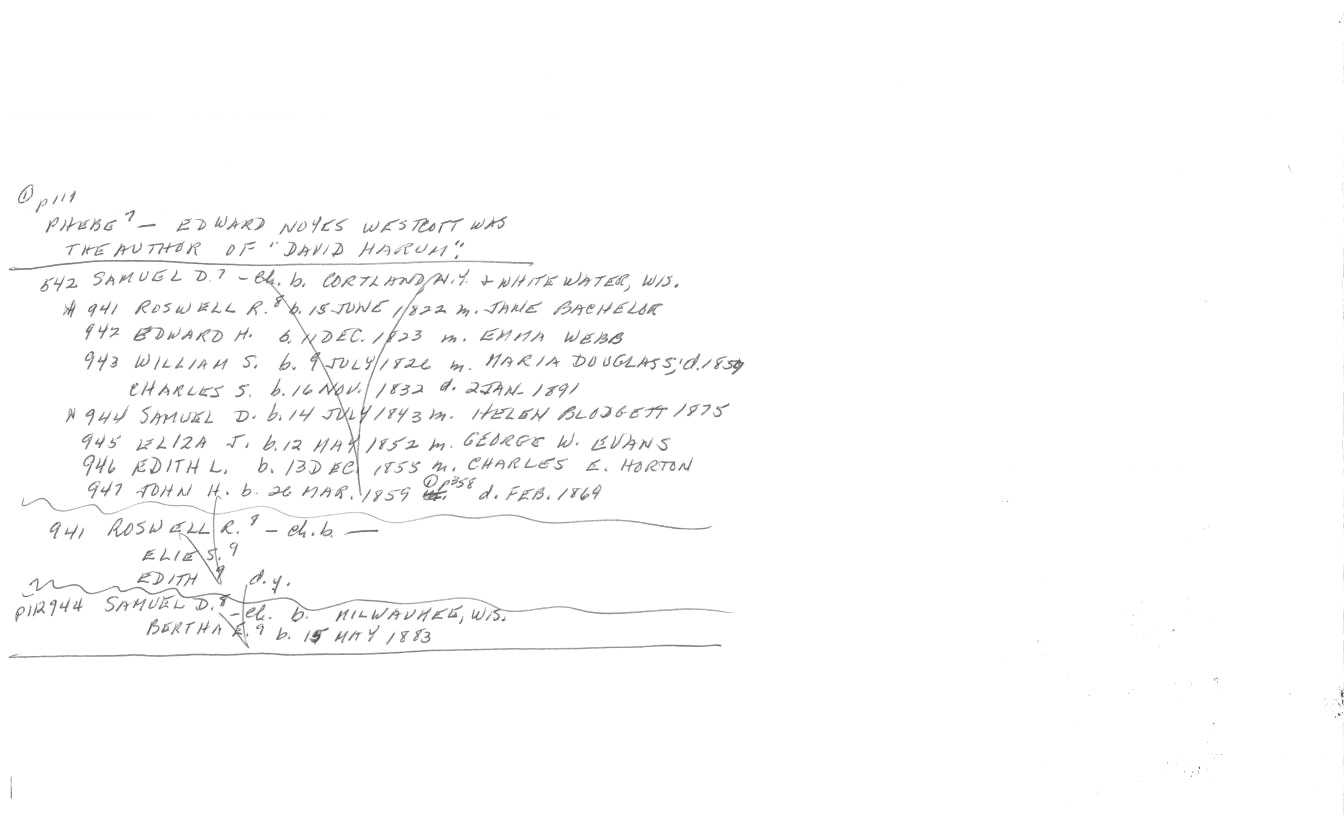 ① p119
PHEBE⁷ — EDWARD NOYES WESTCOTT WAS
THE AUTHOR OF "DAVID HARUM".
542 SAMUEL D.⁷ - Ch. b. CORTLAND, N.Y. & WHITE WATER, WIS.
* 941 ROSWELL R.⁸ b. 15 JUNE 1822 m. JANE BACHELOR
942 EDWARD H. b. 11 DEC. 1823 m. EMMA WEBB
943 WILLIAM S. b. 9 JULY 1826 m. MARIA DOUGLASS; d. 1859
CHARLES S. b. 16 NOV. 1832 d. 2 JAN. 1891
* 944 SAMUEL D. b. 14 JULY 1843 m. HELEN BLODGETT 1875
945 ELIZA J. b. 12 MAY 1852 m. GEORGE W. EVANS
946 EDITH L. b. 13 DEC. 1855 m. CHARLES E. HORTON
947 JOHN H. b. 26 MAR. 1859 ① p358 d. FEB. 1869
941 ROSWELL R.⁸ - ch. b. —
ELIE S.⁹
EDITH ⁹ d.y.
p112 944 SAMUEL D.⁸ - ch. b. MILWAUKEE, WIS.
BERTHA E.⁹ b. 15 MAY 1883